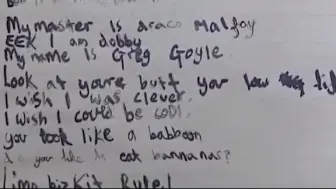 My master is Draco Malfoy
EEK I am dobby
My name is Greg Goyle
Look at youre butt you low
I wish I was clever.
I wish I could be cool.
you look like a babboon
you like to eat bannanas?
Limp bizkit Rule!